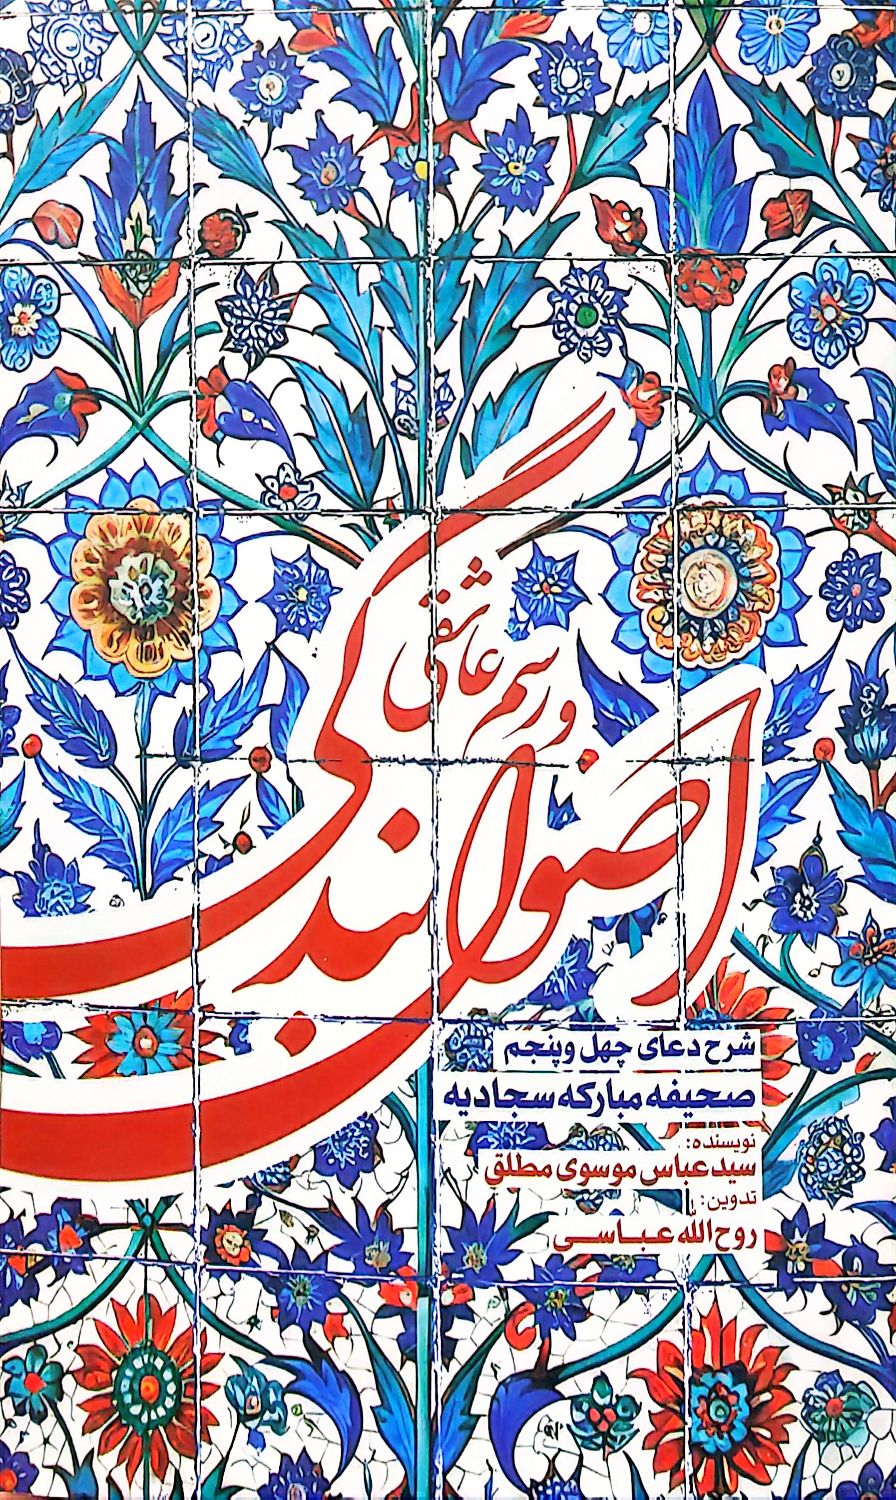 رضوان بندگی
و رسم عاشقی
شرح دعای چهل و پنجم
صحیفه مبارکه سجادیه
نویسنده:
سید عباس موسوی مطلق
تدوین:
روح الله عباسی